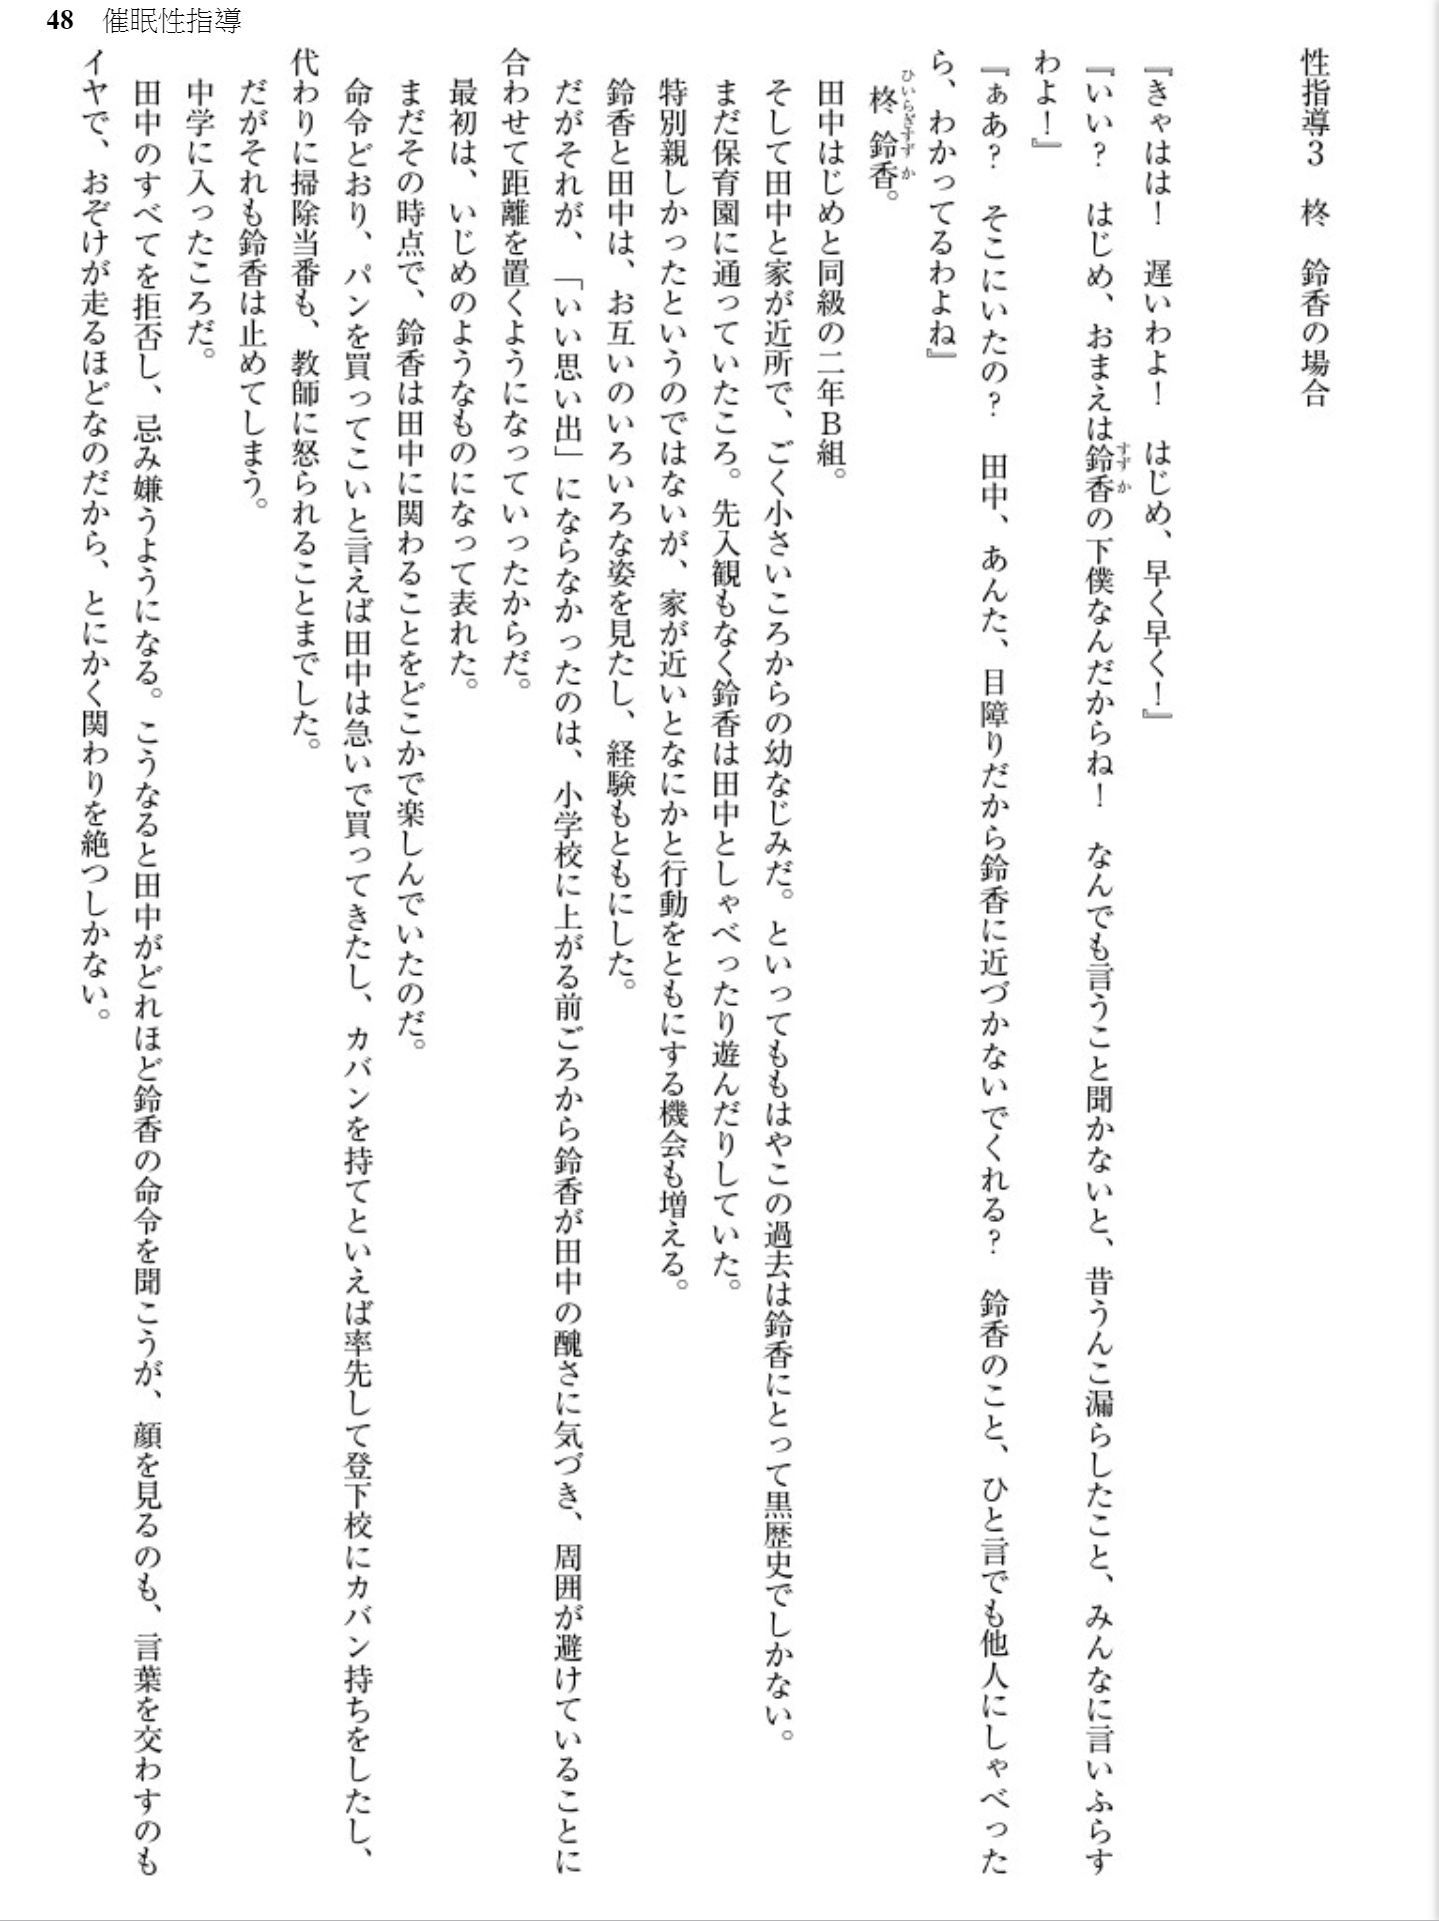 48 催眠性指導
性指導３　柊　鈴香の場合
『きゃはは！　遅いわよ！　はじめ、早く早く！』
『いい？　はじめ、おまえは鈴香の下僕なんだからね！　なんでも言うこと聞かないと、昔うんこ漏らしたこと、みんなに言いふらす
わよ！』
『ぁあ？　そこにいたの？　田中、あんた、目障りだから鈴香に近づかないでくれる？　鈴香のこと、ひと言でも他人にしゃべった
ら、わかってるわよね』
柊鈴香。
田中はじめと同級の二年Ｂ組。
そして田中と家が近所で、ごく小さいころからの幼なじみだ。といってももはやこの過去は鈴香にとって黒歴史でしかない。
まだ保育園に通っていたころ。先入観もなく鈴香は田中としゃべったり遊んだりしていた。
特別親しかったというのではないが、家が近いとなにかと行動をともにする機会も増える。
鈴香と田中は、お互いのいろいろな姿を見たし、経験もともにした。
だがそれが、「いい思い出」にならなかったのは、小学校に上がる前ごろから鈴香が田中の醜さに気づき、周囲が避けていることに
合わせて距離を置くようになっていったからだ。
最初は、いじめのようなものになって表れた。
まだその時点で、鈴香は田中に関わることをどこかで楽しんでいたのだ。
命令どおり、パンを買ってこいと言えば田中は急いで買ってきたし、カバンを持てといえば率先して登下校にカバン持ちをしたし、
代わりに掃除当番も、教師に怒られることまでした。
だがそれも鈴香は止めてしまう。
中学に入ったころだ。
田中のすべてを拒否し、忌み嫌うようになる。こうなると田中がどれほど鈴香の命令を聞こうが、顔を見るのも、言葉を交わすのも
イヤで、おぞけが走るほどなのだから、とにかく関わりを絶つしかない。